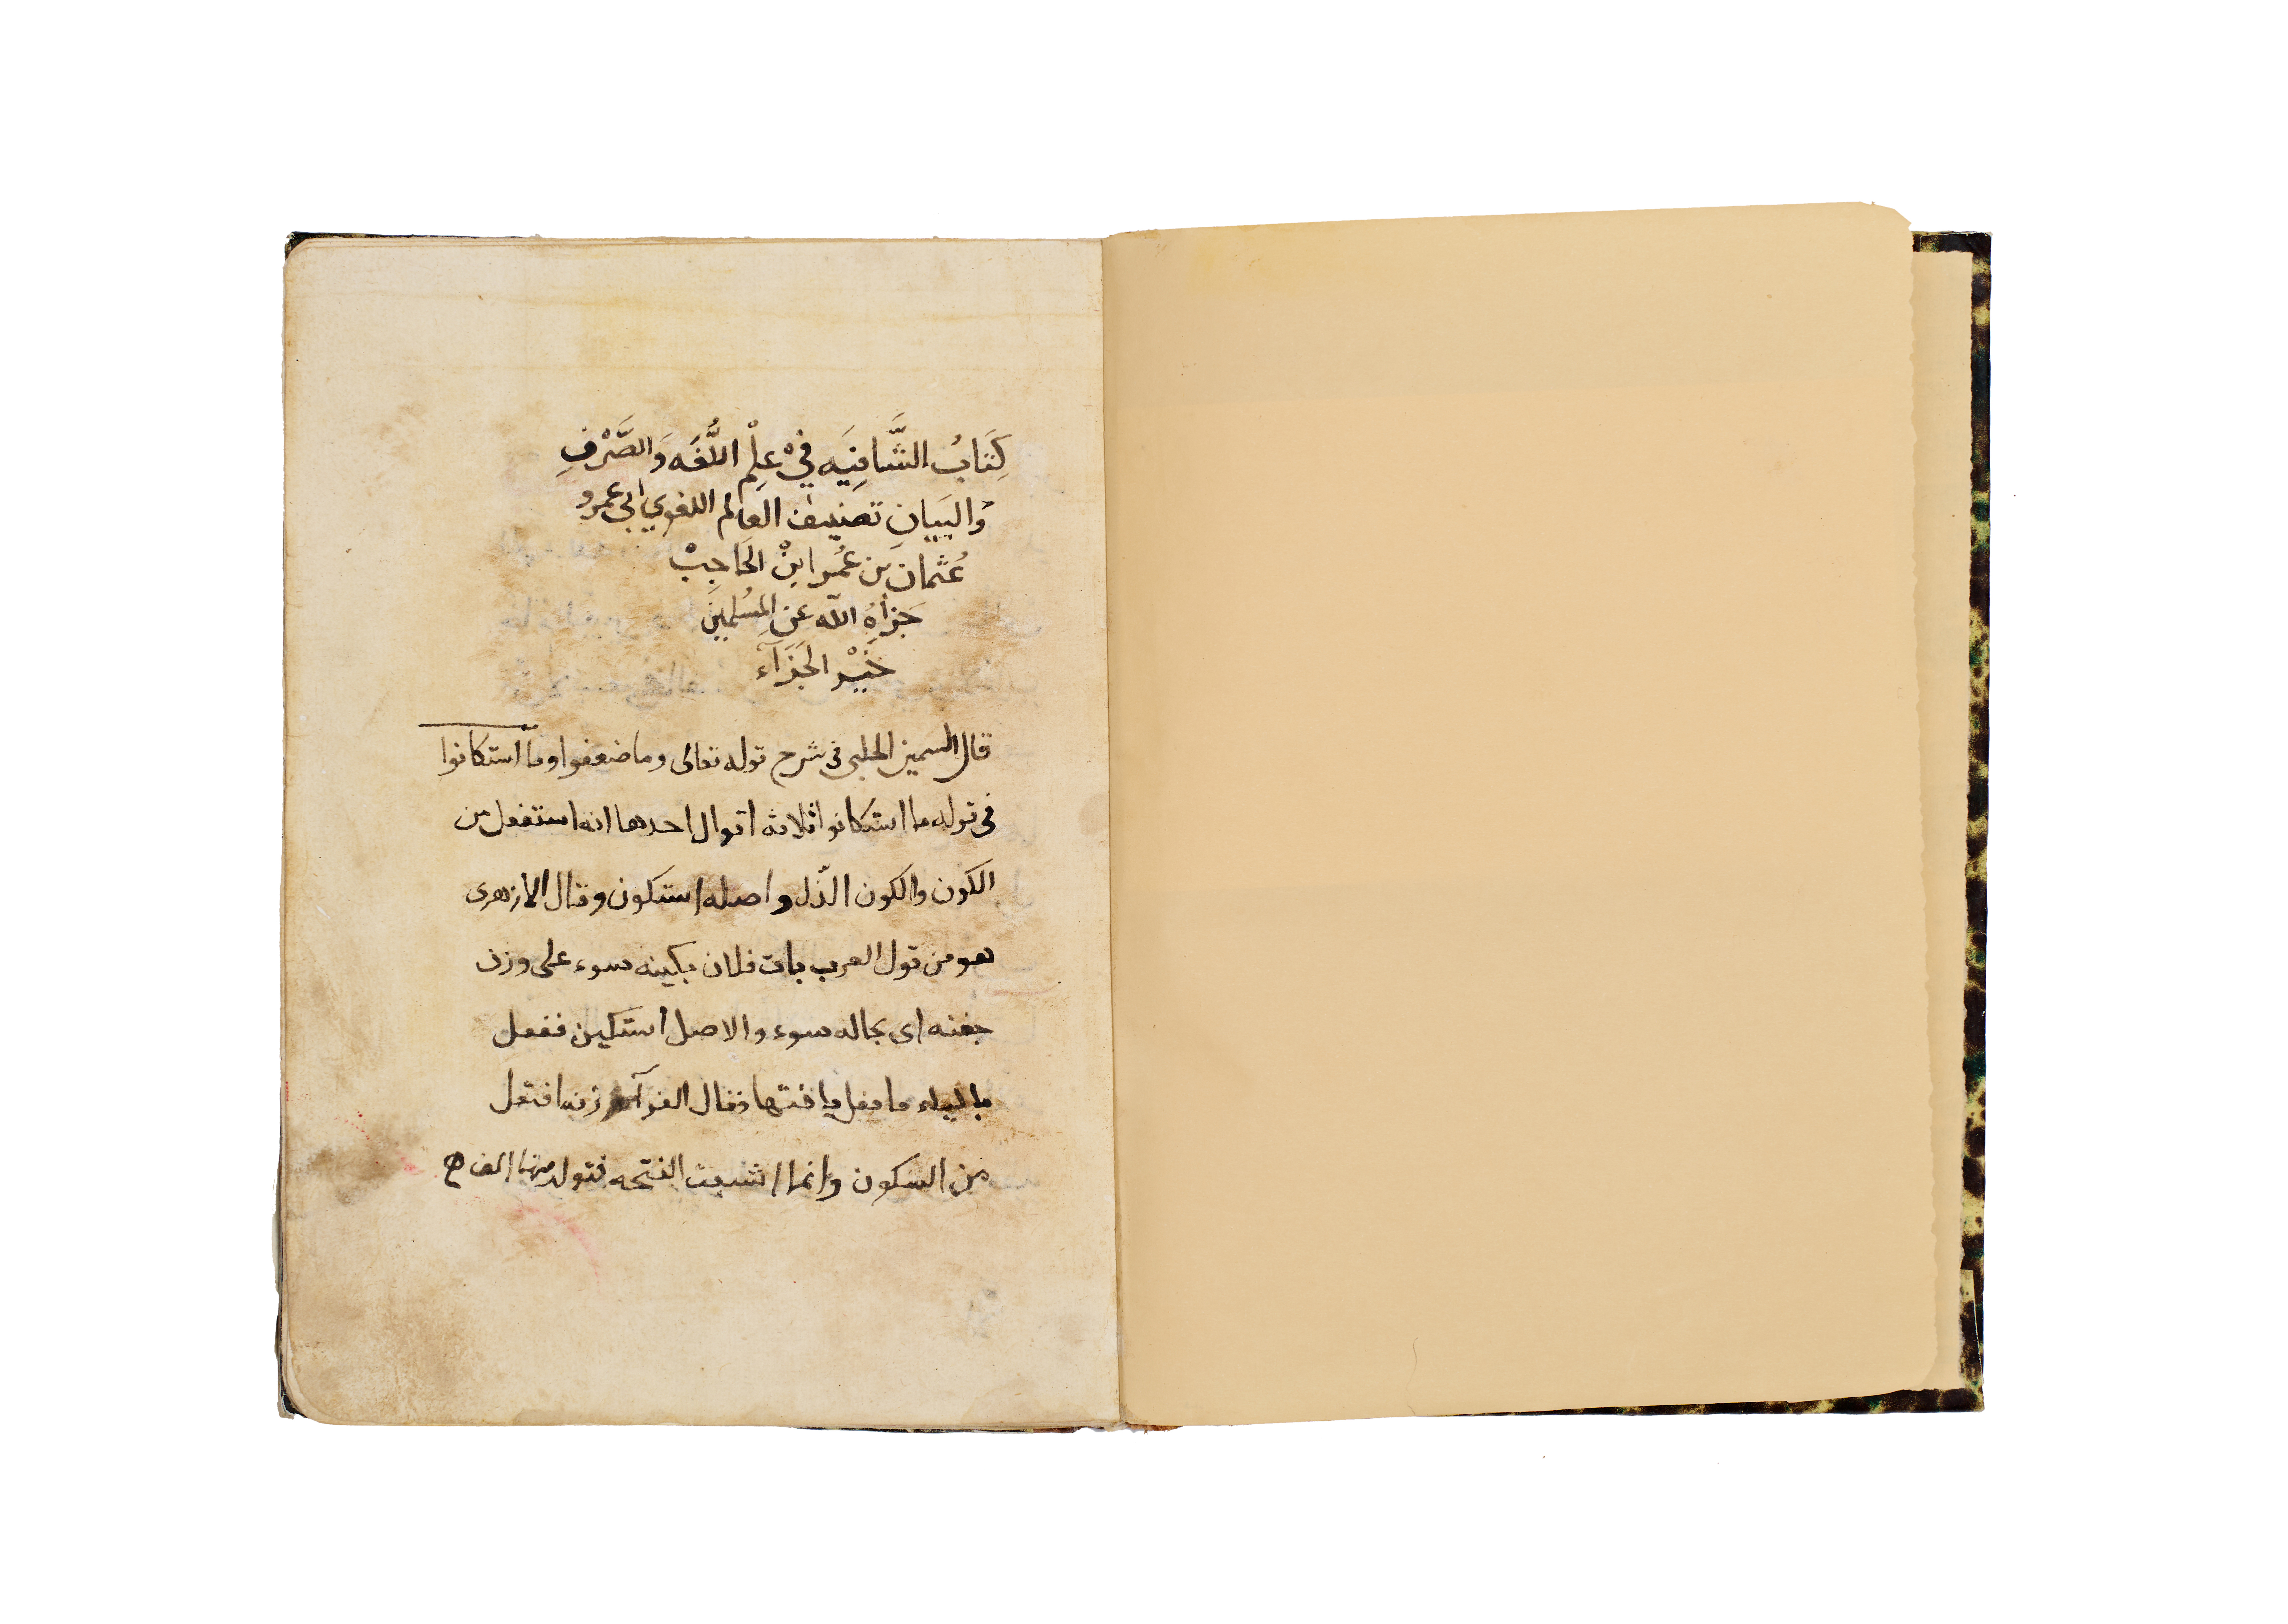 كِتَابُ الشَّافِيَه فِيْ عِلْمِ اللُّغَه وَالصَّرْفِ
وَالبَيَانِ تصنيف العالم اللغوي ابي عمرو
عُثمان بن عُمر ابنْ الحَاجِبْ
جَزَاهُ الله عن المِسُلمينَ
خَيْر الجَزَآء
قال السمين الحلبى فى شرح قوله تعالى وما ضعفوا وما استكانوا
فى قوله ما استكانوا ثلاثه اقوال احدها انه استفعل من
الكون والكون الذّل واصله استكون وقال الازهرى
هو من قول العرب بات فلان بكينه سوء على وزن
جفنه اى بحاله سوء والاصل استكين ففعل
بالياء ما فعل باختها وقال الفرآء وزنه افتعل
من السكون وانما اشبعت الفتحه فتولد منها الف